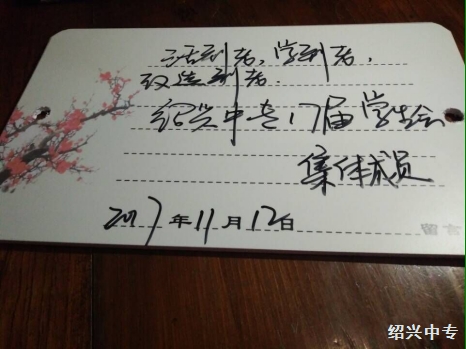 活到老，学到老，
改造到老．
绍兴中专17届学生会
集体成员
2017年11月12日
留言
绍兴中专